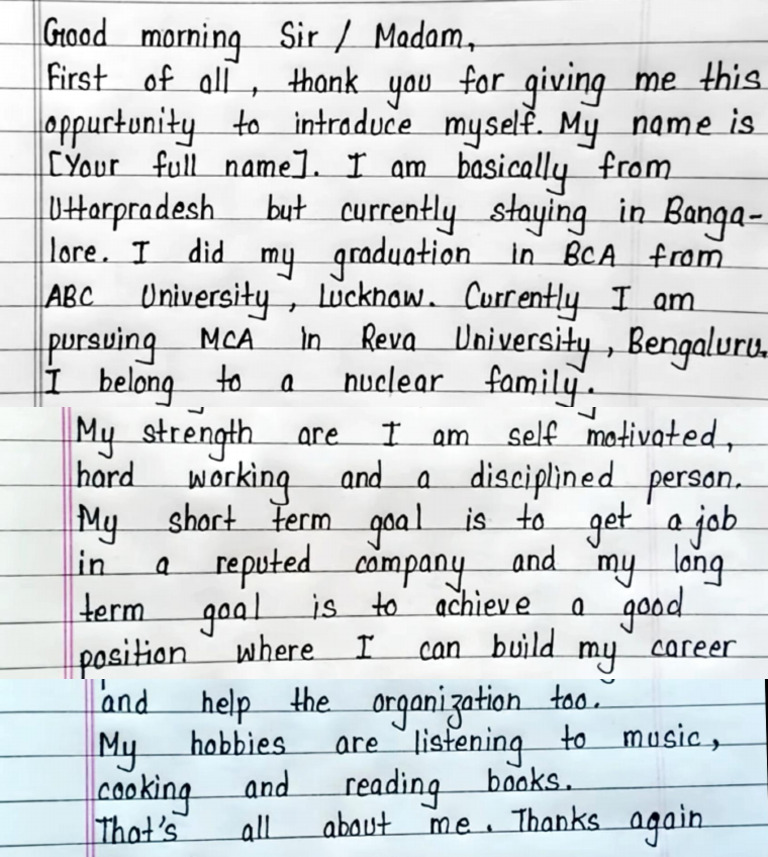 Good morning Sir / Madam,
First of all, thank you for giving me this
oppurtunity to introduce myself. My name is
[Your full name]. I am basically from
Uttarpradesh but currently staying in Banga-
lore. I did my graduation in BCA from
ABC University, Lucknow. Currently I am
pursuing MCA in Reva University, Bengaluru.
I belong to a nuclear family.
My strength are I am self motivated,
hard working and a disciplined person.
My short term goal is to get a job
in a reputed company and my long
term goal is to achieve a good
position where I can build my career
and help the organization too.
My hobbies are listening to music,
cooking and reading books.
That's all about me. Thanks again